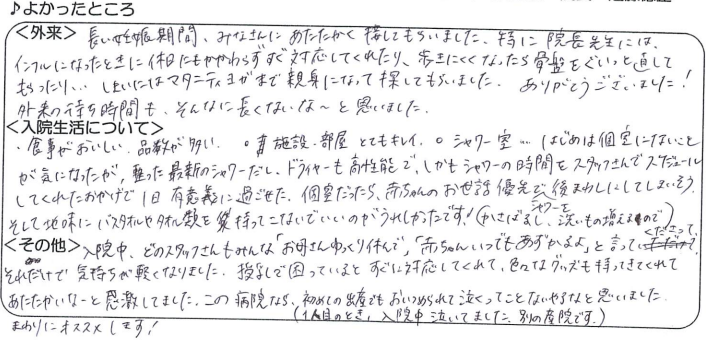 ♪よかったところ
<外来> 長い妊娠期間、みなさんにあたたかく接してもらいました。特に院長先生には、
インフルになったときに休日にもかかわらずすぐ対応してくれたり、歩きにくくなったら骨盤をぐいっと直して
もらったり… しまいにはマタニティヨガまで親身になって探してもらいました。ありがとうございました!
外来の待ち時間も、そんなに長くないな〜と思いました。
<入院生活について>
・食事がおいしい、品数が多い。 ・施設・部屋とてもキレイ。 ・シャワー室… はじめは個室にないこと
が気になったが、整った最新のシャワーだし、ドライヤーも高性能で、しかもシャワーの時間をスタッフさんでスケジュール
してくれたおかげで1日有意義に過ごせた。個室だったら、赤ちゃんのお世話優先でシャワーを後まわしにしてしまいそう。
そして地味にバスタオルやタオル類を持ってこないでいいのがうれしかったです!(かさばるし、洗いもの増えるので)
<その他> 入院中、どのスタッフさんもみんな「お母さんゆっくり休んで」、「赤ちゃんいつでもあずかるよ」と言ってくださって、
それだけで気持ちが軽くなりました。授乳で困っているとすぐに対応してくれて、色々なグッズも持ってきてくれて
あたたかいな〜と感激してました。この病院なら、初めての出産でもおいつめられて泣くってことないやろなと思いました。
まわりにオススメします! (1人目のとき、入院中泣いてました。別の産院です。)